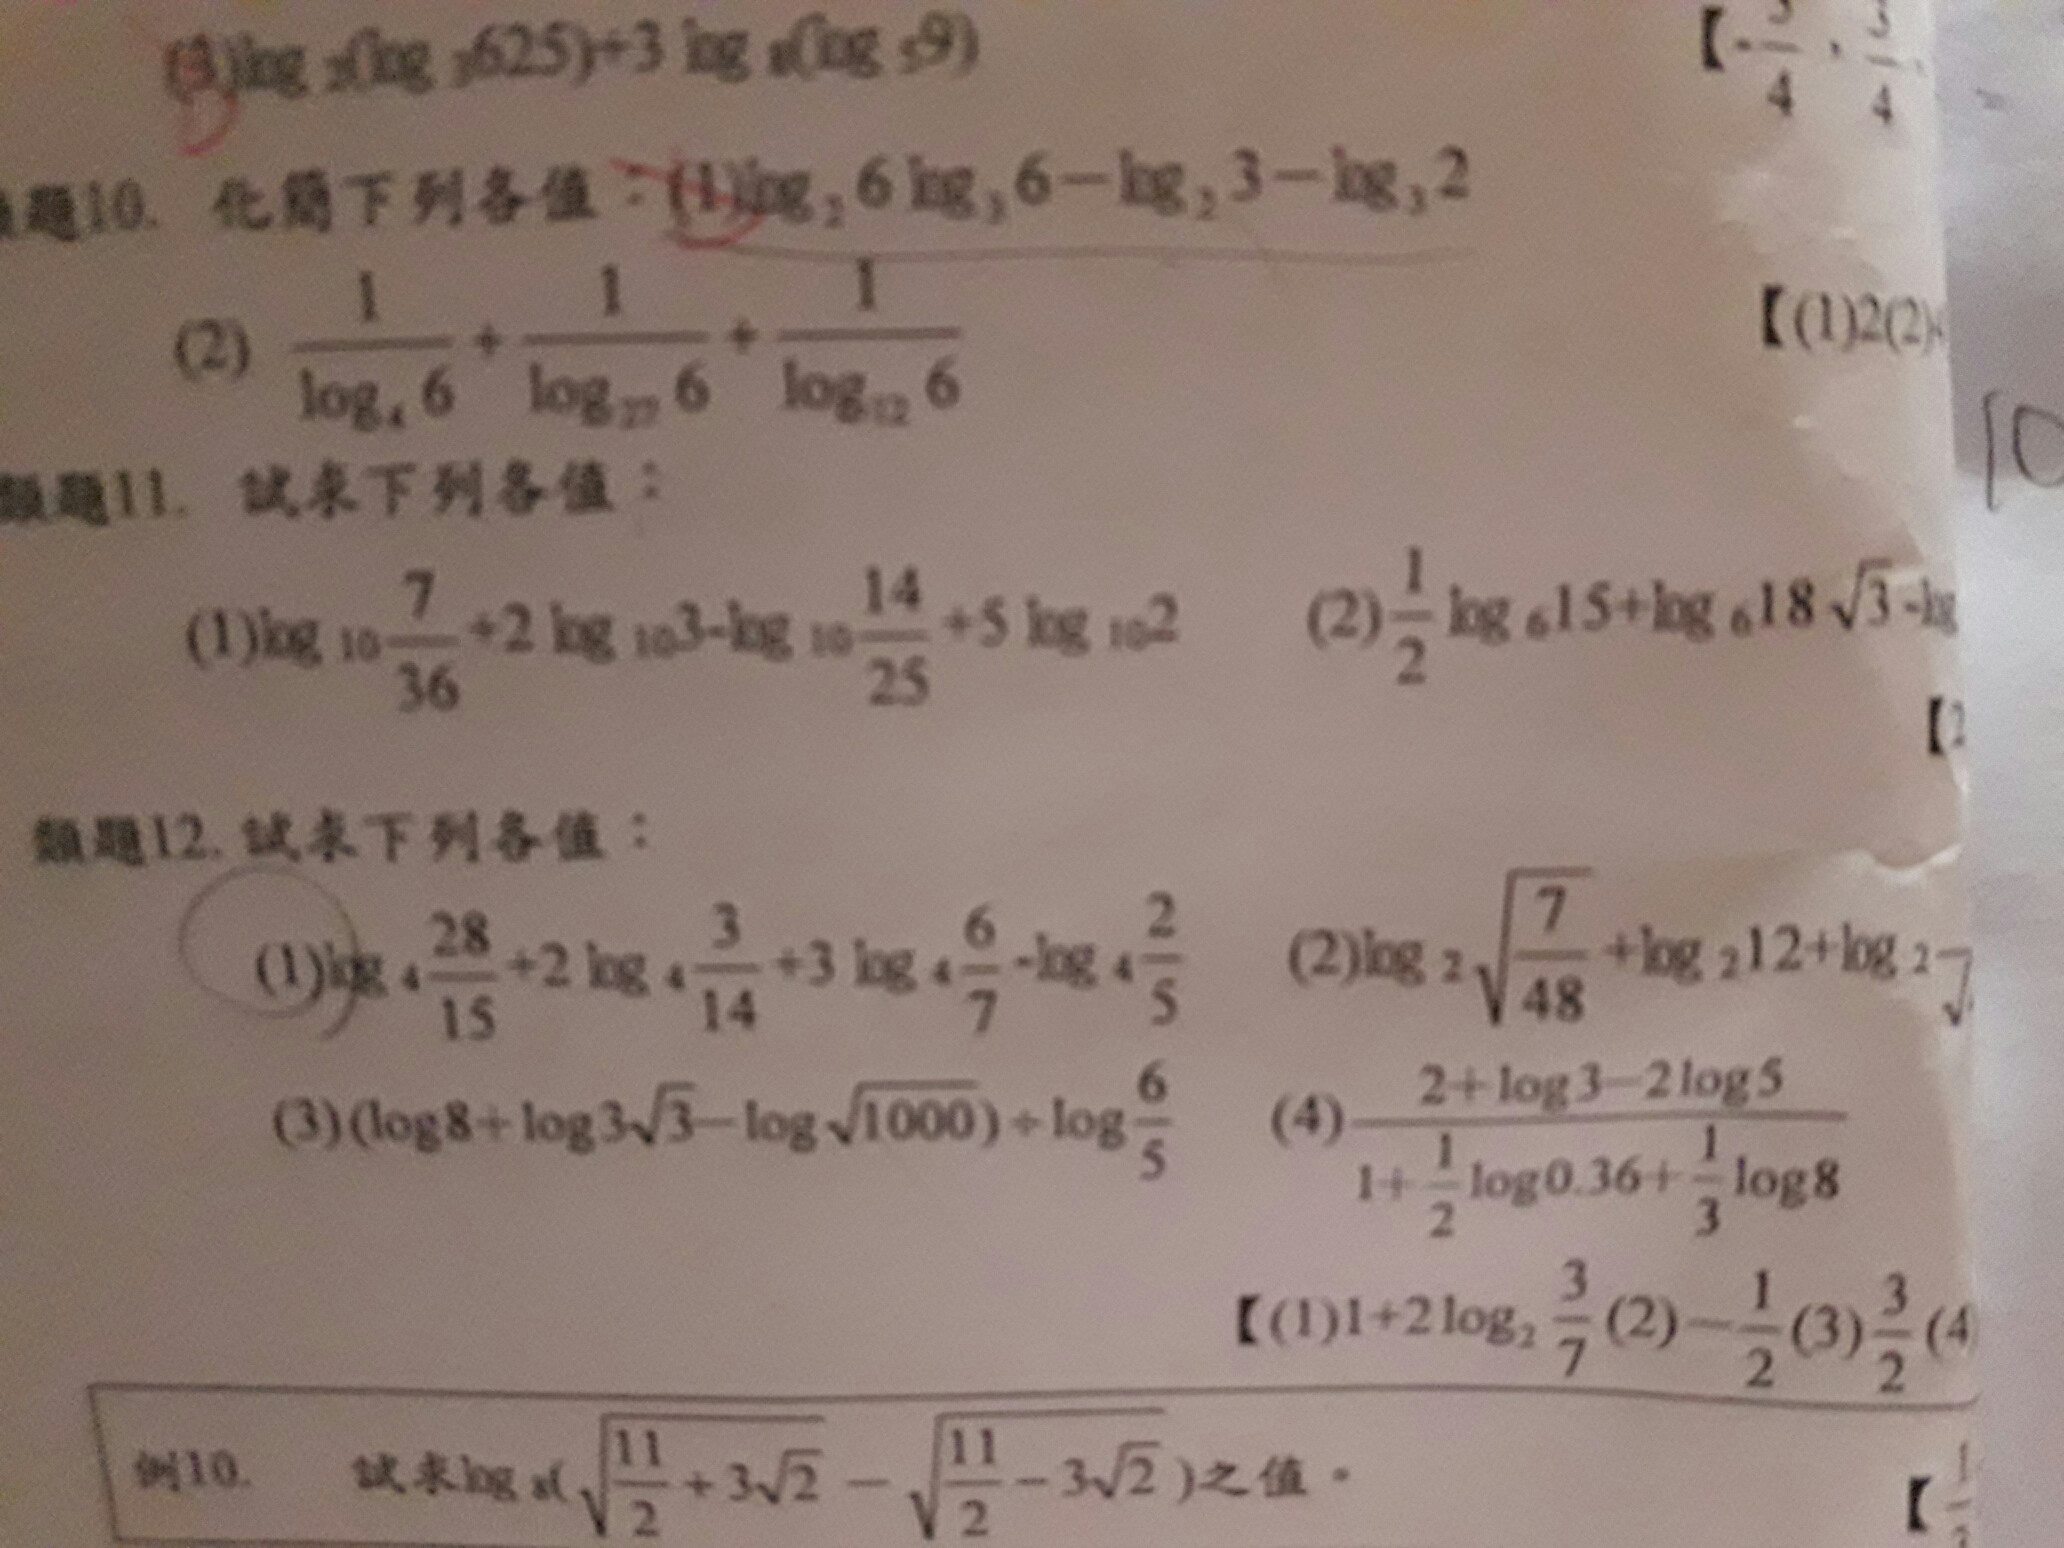 (3)log ₃(log ₃625)+3 log ₈(log ₅9)
【-3/4 , 3/4
題10. 化簡下列各值：(1)log₂ 6 log₃ 6－log₂ 3－log₃ 2
(2) 1/log₄ 6 + 1/log₂₇ 6 + 1/log₁₂ 6
【(1)2(2)
10
類題11. 試求下列各值：
(1)log ₁₀ 7/36 +2 log ₁₀3-log ₁₀ 14/25 +5 log ₁₀2 (2) 1/2 log ₆15+log ₆18 √3 -log
【2
類題12. 試求下列各值：
(1)log ₄ 28/15 +2 log ₄ 3/14 +3 log ₄ 6/7 -log ₄ 2/5 (2)log ₂ √(7/48) +log ₂12+log ₂
(3)(log8+log3√3－log√1000)÷log 6/5 (4) (2+log3－2log5)/(1+ 1/2 log0.36+ 1/3 log8)
【(1)1+2log₂ 3/7 (2)－1/2 (3) 3/2 (4
例10. 試求log ₈( √(11/2 + 3√2) － √(11/2 － 3√2) )之值。
【1